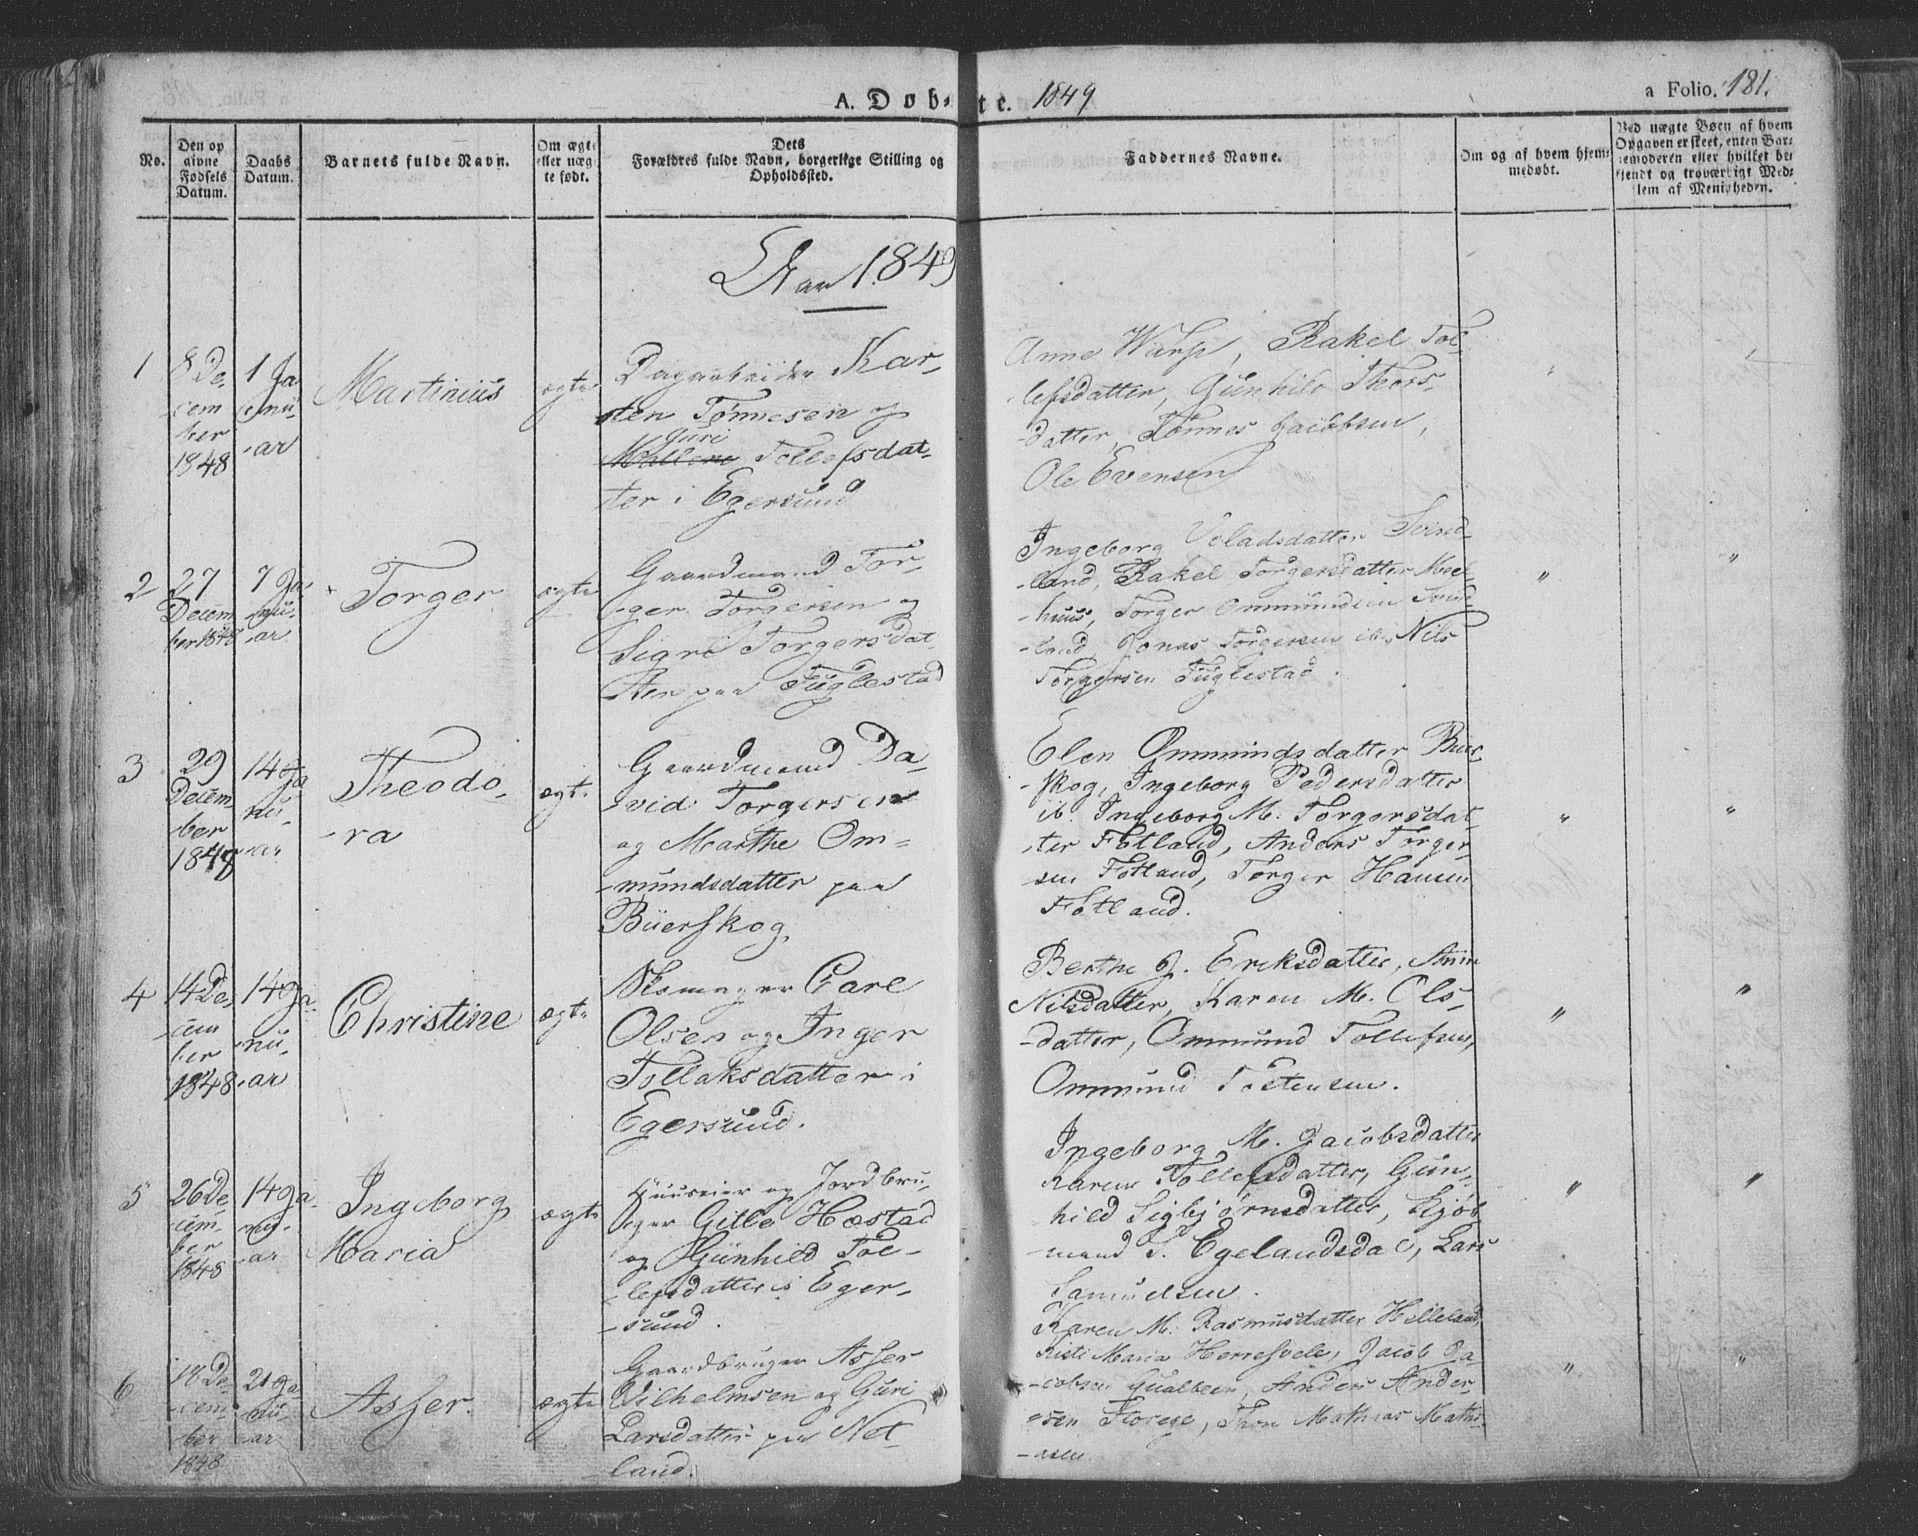 A. Døb- te. 1849
a Folio. 181.
No.
Den op
givne
Fødsels
Datum.
Daabs
Datum.
Barnets fulde Navn.
Om ægte
eller uæg
te født.
Dets
Forældres fulde Navn, borgerlige Stilling og
Opholdssted.
Faddernes Navne.
Om og af hvem hjem-
medøbt.
Ved uægte Børn af hvem
Opgaven er skeet, enten Bar-
nemoderen eller hvilket be-
kjendt og troværdigt Med-
lem af Menigheden.
Aar 1849
1
8 De-
cem
ber
1848
1 Ja
nu-
-ar
Martinius
ægte
Dagarbeider Kar-
sten Tønnesen og
Guri
Mallene Tollefsdat-
ter i Egersund
Anne Warp, Rakel Tol-
lefsdatter, Gunhild Thors-
datter, Tønnes Jacobsen,
Ole Evensen
2
27
Decem
ber 1848
7 Ja
nu-
-ar
Torger
ægte
Gaardmand Tor-
-ger Torgersen og
Sigri Torgersdat
ter paa Fuglestad
Ingeborg Veladsdatter Svind-
land, Rakel Torgersdatter
huus, Torger Ommundsen Svind
land, Jonas Torgersen ib. Nils
Torgersen Fuglestad.
"
"
3
29
Decem-
ber
1848
14 Ja
nu-
-ar
Theodo-
-ra
ægt.
Gaardmand Da-
vid Torgersen
og Marthe Om-
-mundsdatter paa
Büerskog
Elen Ommundsdatter Bue-
skog, Ingeborg Pedersdatter
ib. Ingeborg M. Torgersdat-
ter Fotland, Anders Torger-
sen Fotland, Torger Hansen
Fotland.
"
"
4
14 De-
cem
ber
1848
14 Ja-
nu-
-ar
Christine
ægt.
Carl
Olsen og Inger
Tollaksdatter i
Egersund.
Berthe J. Eriksdatter,
Nilsdatter, Karen M. Ols-
datter, Ommund Tollefsen,
Ommund Tostensen.
"
"
5
26 De-
cem-
ber
1848
14 Ja-
nu-
-ar
Ingeborg
Maria
ægte
Huuseier og Jordbru-
ger Gitle Hæstad
og Gunhild Tol-
lefsdatter i Eger-
-sund.
Ingeborg M. Jacobsdatter
Karen Tollefsdatter, Gun-
hild Sigbjørnsdatter, Kjøb-
mand S. Egelandsdal, Lars
Samuelsen.
"
"
6
18 De-
cem-
ber
1848
21 Ja
nu-
ar
Asser.
ægte
Gaardbruger Asser
Vilhelmsen og Guri
Larsdatter paa Net-
land.
Karen M. Rasmusdatter Helleland,
Kisti Maria Herresvele, Jacob Ja-
-cobsen, Anders Ander-
sen, Thor Mathias Mathi-
-asen
"
"